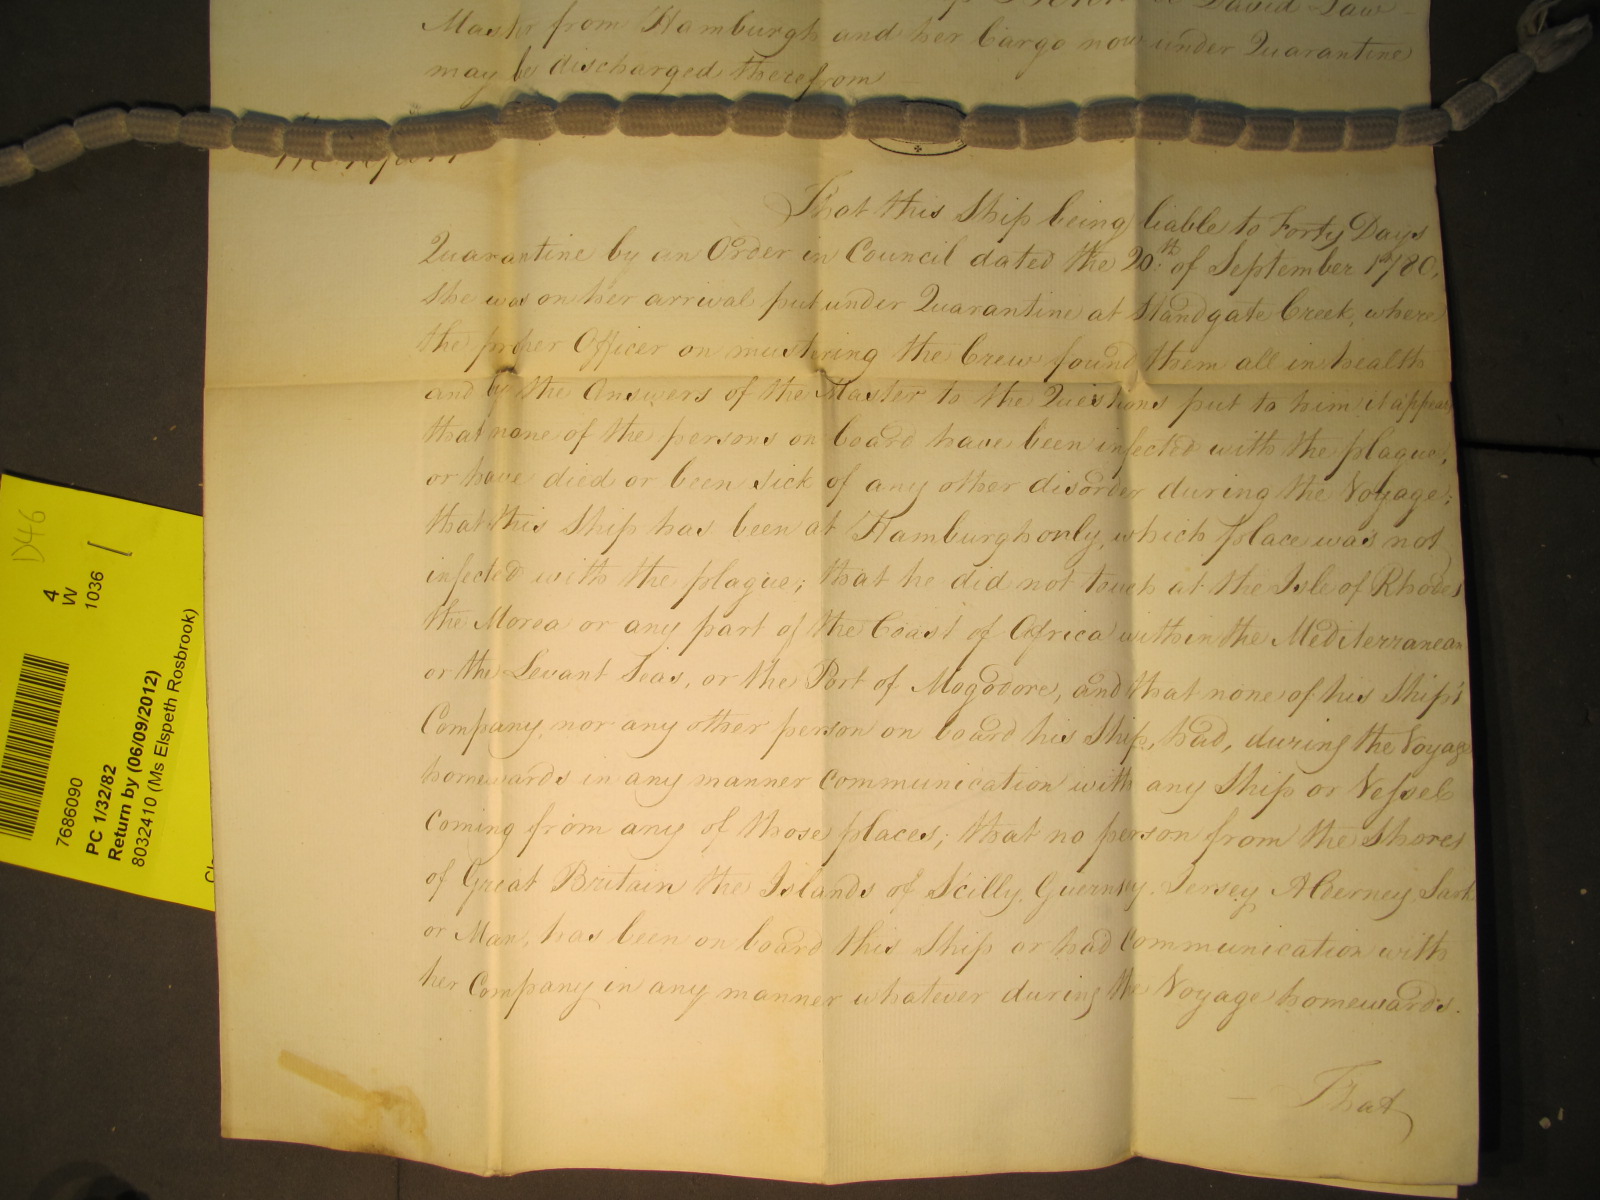 David Law
Master from Hamburgh and her Cargo now under Quarantine
may be discharged therefrom
That this Ship being liable to Forty Days
Quarantine by an Order in Council dated the 20.th of September 1780,
she was on her arrival put under Quarantine at Standgate Creek, where
the proper Officer on mustering the Crew found them all in health
and by the Answers of the Master to the Questions put to him it appears
that none of the persons on board have been infected with the plague,
or have died or been sick of any other disorder during the Voyage;
that this Ship has been at Hamburgh only, which place was not
infected with the plague; that he did not touch at the Isle of Rhodes
the Morea or any part of the Coast of Africa within the Mediterranean
or the Levant Seas, or the Port of Mogodore, and that none of his Ship's
Company, nor any other person on board his Ship, had, during the Voyage
homewards in any manner communication with any Ship or Vessel
coming from any of those places; that no person from the Shores
of Great Britain the Islands of Scilly, Guernsey, Jersey, Alderney, Sark
or Man, has been on board this Ship or had Communication with
her Company in any manner whatever during the Voyage homewards.
That
D46
4
W
1036 [
7686090
PC 1/32/82
Return by (06/09/2012)
8032410 (Ms Elspeth Rosbrook)